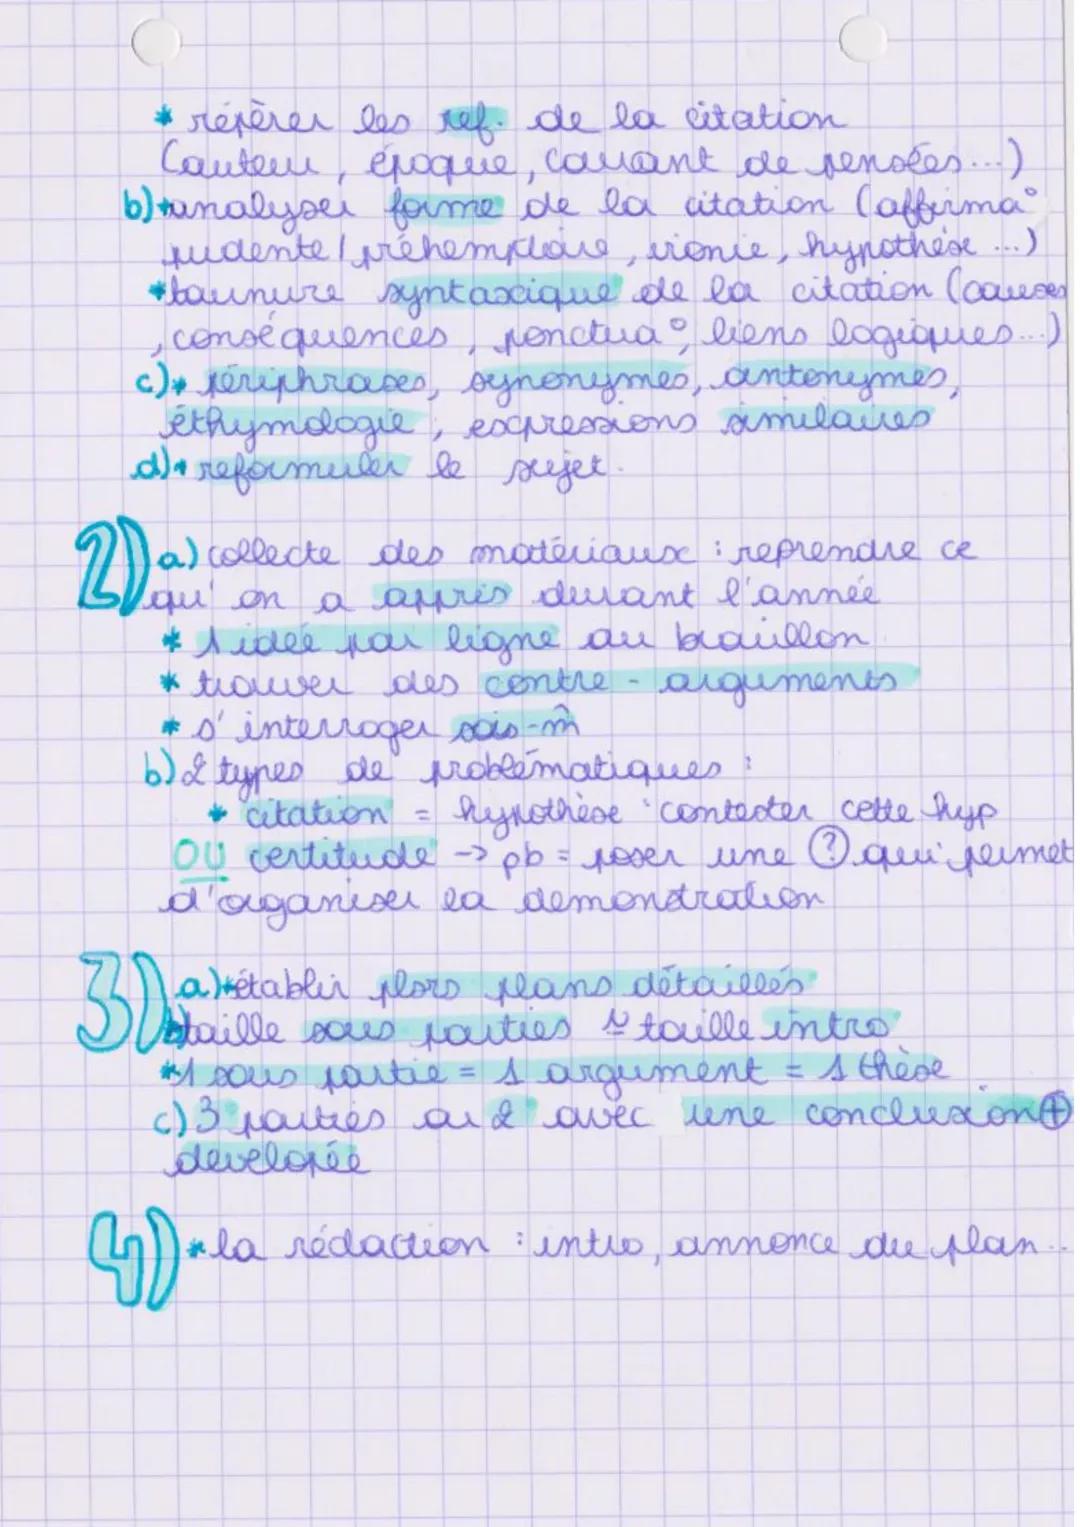 * répèrer les ref. de la citation
(auteur, époque, courant de pensées...)
b)*analyser forme de la citation (affirma°
prudente / préhemptoire, ironie, hypothèse ...)
*tournure syntaxique de la citation (causes
, conséquences, ponctua°, liens logiques...)
c)* périphrases, synonymes, antonymes,
éthymologie, expressions similaires
d)* reformuler le sujet.
2) a) collecte des matériaux : reprendre ce
qu'on a appris durant l'année
* 1 idée par ligne au brouillon
* trouver des contre-arguments
* s'interroger sois-m̂
b) 2 types de problématiques :
* citation = hypothèse : contester cette hyp
OU certitude -> pb = poser une ? qui permet
d'organiser la demonstration
3) a)*établir plors plans détaillés
b)taille sous parties ≃ taille intro
*1 sous partie = 1 argument = 1 thèse
c) 3 parties ou 2 avec une conclusion +
developée
4) *la rédaction : intro, annonce du plan..